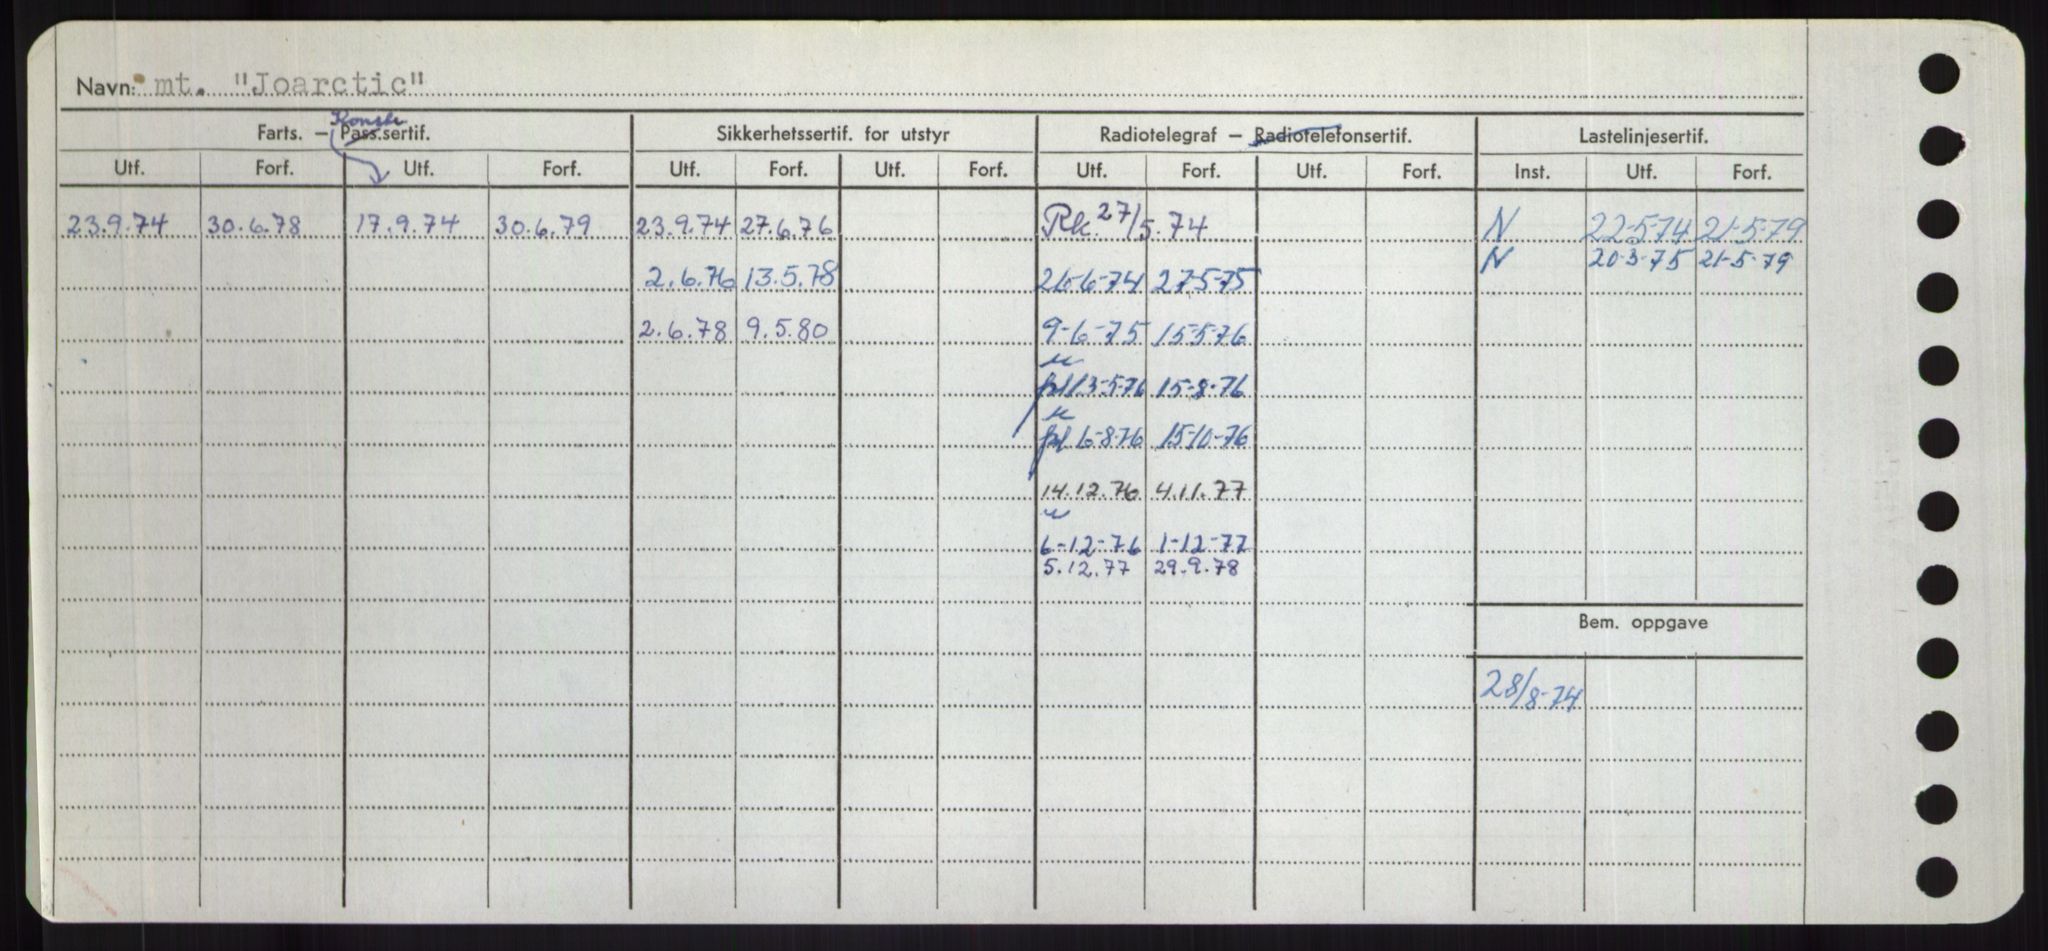 Navn: mt. "Joarctic"
Konstr
Farts. – Pass.sertif. Sikkerhetssertif. for utstyr Radiotelegraf – Radiotelefonsertif. Lastelinjesertif.
Utf. Forf. Utf. Forf. Utf. Forf. Utf. Forf. Utf. Forf. Utf. Forf. Inst. Utf. Forf.
23.9.74 30.6.78 17.9.74 30.6.79 23.9.74 27.6.76 Rk. 27/5.74 N 22-5-74 21-5-79
N 20-3-75 21-5-79
2.6.76 13.5.78 26-6-74 27-5-75
2.6.78 9.5.80 9-6-75 15-5-76
13-5-76 15-8-76
6-8-76 15-10-76
14.12.76 4.11.77
6-12-76 1-12-77
5.12.77 29.9.78
Bem. oppgave
28/8-74